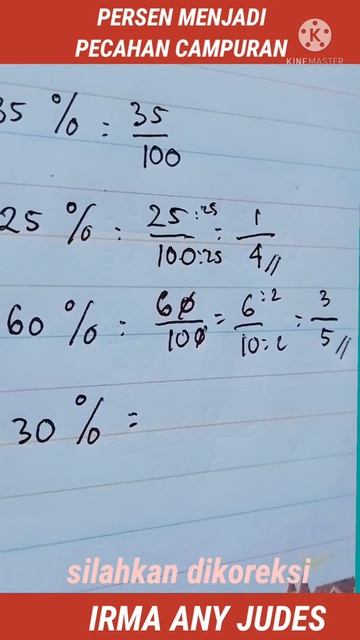 PERSEN MENJADI
PECAHAN CAMPURAN
KINEMASTER
35 % = 35/100
25 % = 25:25/100:25 = 1/4 //
60 % = 60/100 = 6:2/10:2 = 3/5 //
30 % =
silahkan dikoreksi
IRMA ANY JUDES